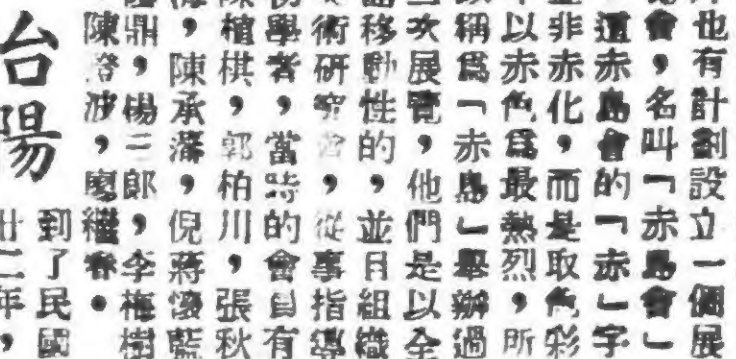 也有計劃設立一個展
會，名叫「赤島會」
這赤島會的「赤」字
非赤化，而是取色彩
以赤色爲最熱烈，所
稱爲「赤島」舉辦過
次展覽，他們是以全
移動性的，並且組織
術研究會，從事指導
學者，當時的會員有
植棋，郭柏川，張秋
，陳承藩，倪蔣懷藍
鼎，楊三郎，李梅樹
陳澄波，廖繼春。
台陽
到了民國
廿二年，